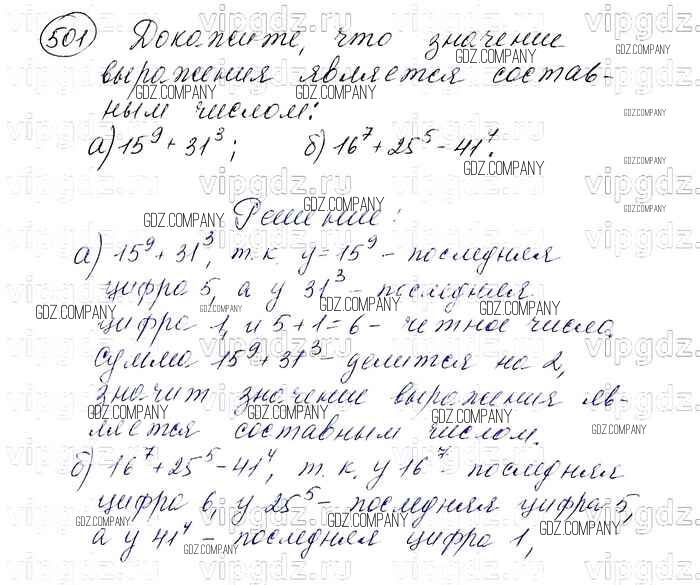 501 Докажите, что значение
выражения является состав-
ным числом:
а) 15⁹ + 31³; б) 16⁷ + 25⁵ - 41⁴.
Решение:
а) 15⁹ + 31³, т.к. у = 15⁹ - последняя
цифра 5, а у 31³ - последняя
цифра 1, и 5 + 1 = 6 - четное число.
сумма 15⁹ + 31³ - делится на 2,
значит значение выражения яв-
ляется составным числом.
б) 16⁷ + 25⁵ - 41⁴, т.к. у 16⁷ - последняя
цифра 6, у 25⁵ - последняя цифра 5,
а у 41⁴ - последняя цифра 1,